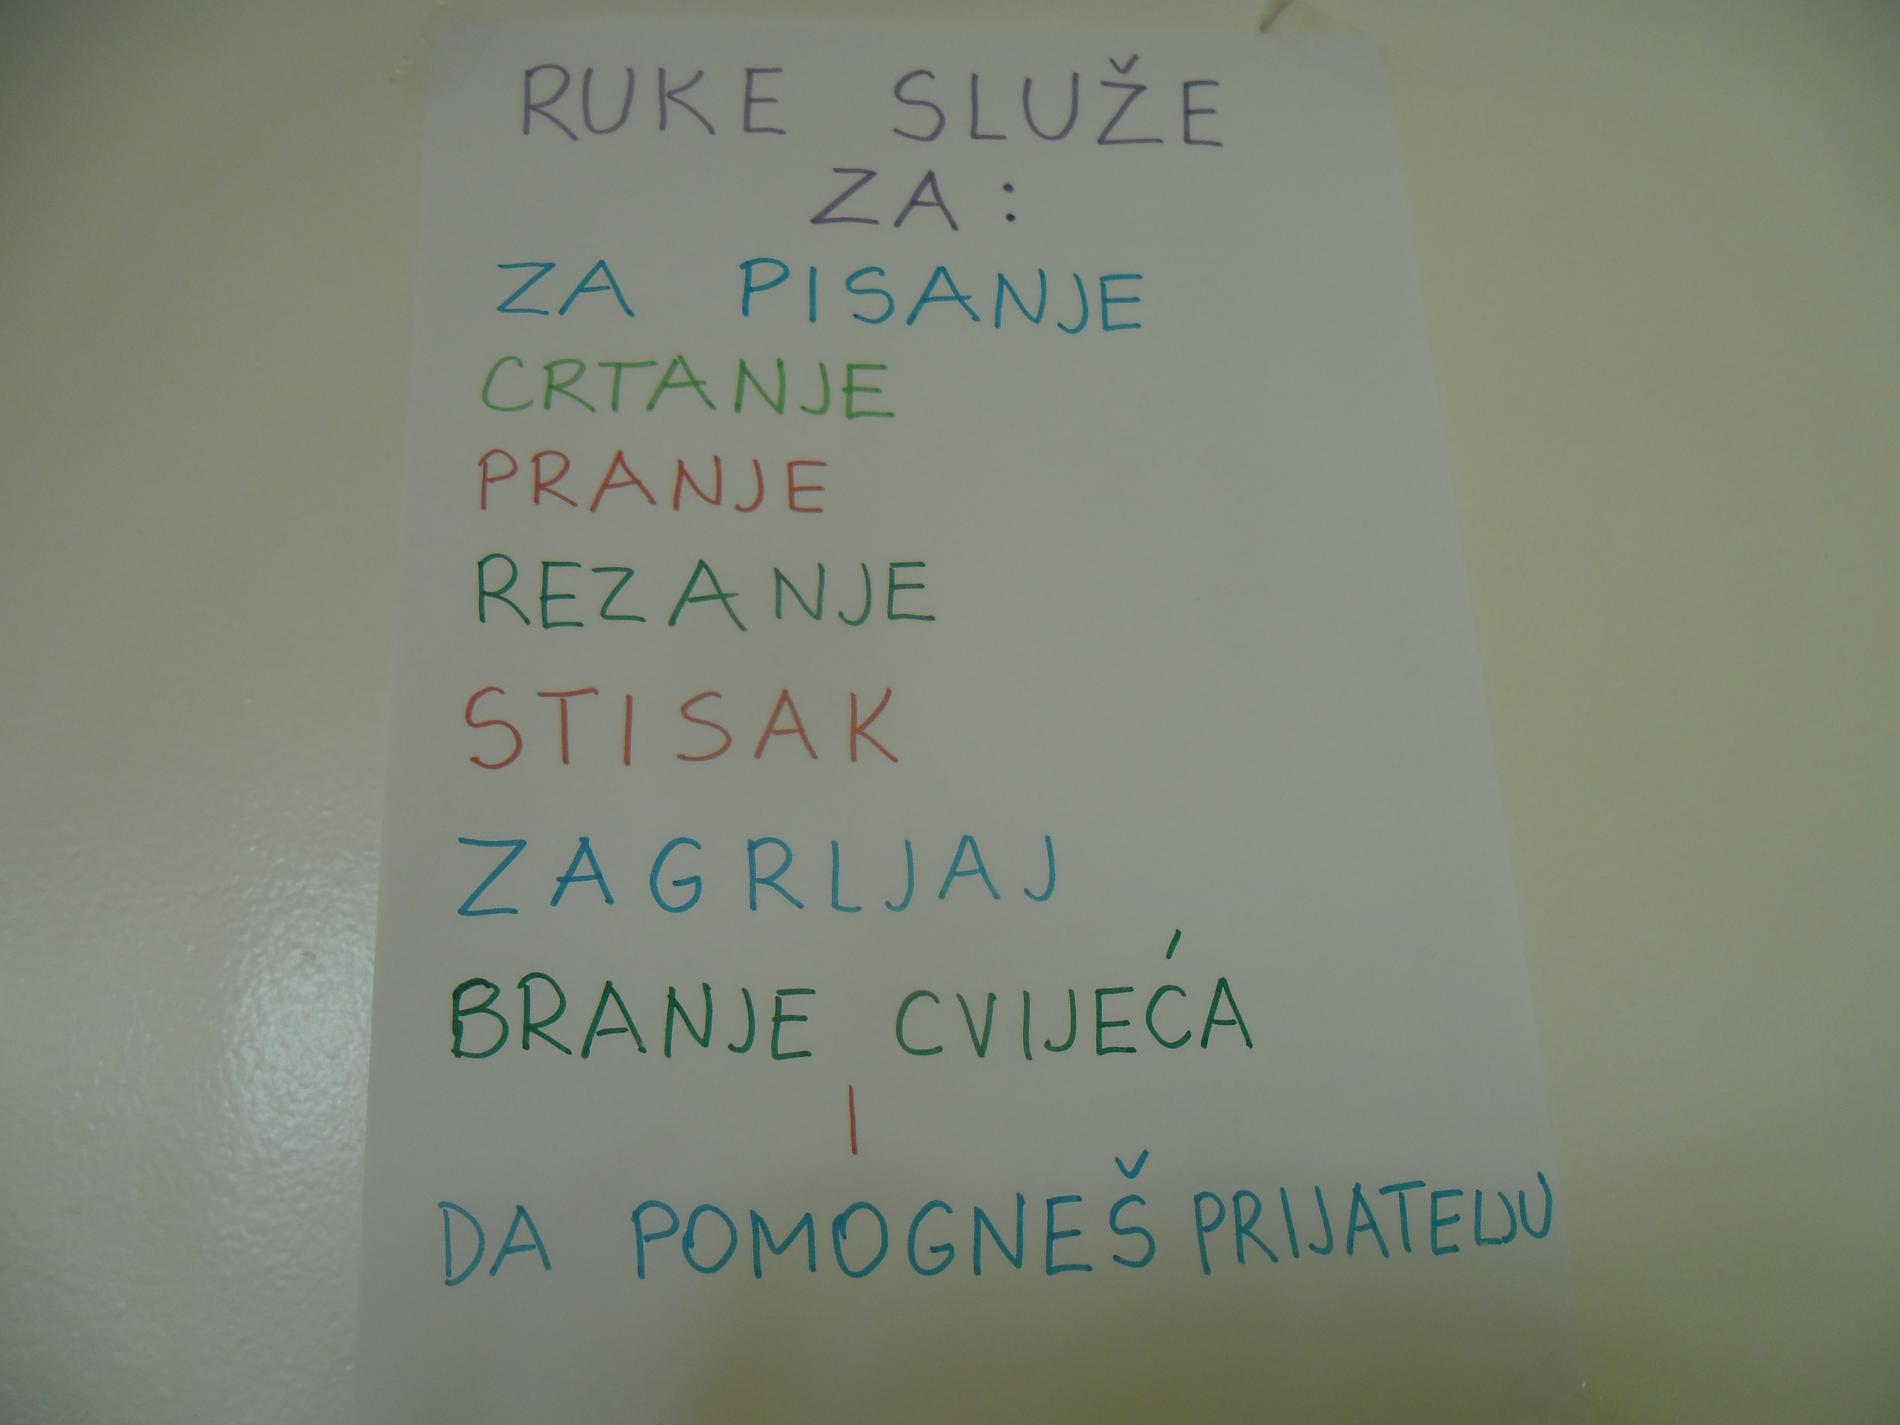 RUKE SLUŽE
ZA:
ZA PISANJE
CRTANJE
PRANJE
REZANJE
STISAK
ZAGRLJAJ
BRANJE CVIJEĆA
I
DA POMOGNEŠ PRIJATELJU